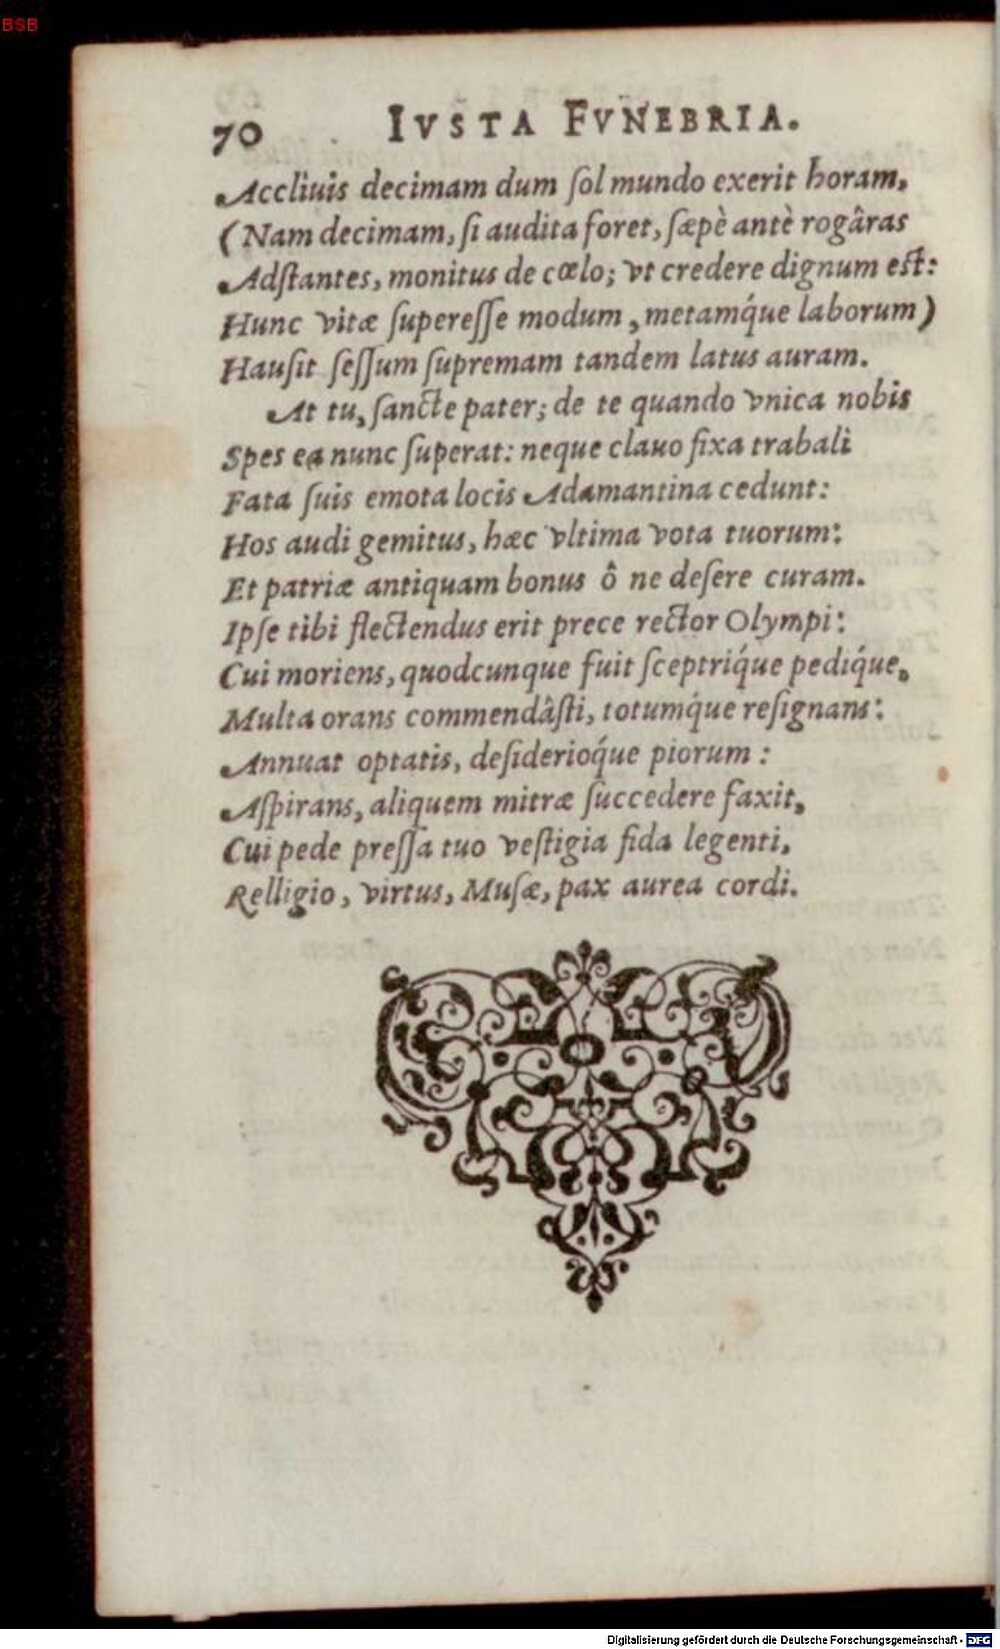 BSB
70 IVSTA FVNEBRIA.
Accliuis decimam dum ſol mundo exerit horam,
(Nam decimam, ſi audita foret, ſæpè antè rogâras
Adſtantes, monitus de cœlo; vt credere dignum eſt:
Hunc vitæ ſupereſſe modum, metamq́ue laborum)
Hauſit feſſum ſupremam tandem latus auram.
At tu, ſancte pater; de te quando vnica nobis
Spes ea nunc ſuperat: neque clauo fixa trabali
Fata ſuis emota locis Adamantina cedunt:
Hos audi gemitus, hæc vltima vota tuorum:
Et patriæ antiquam bonus ô ne deſere curam.
Ipſe tibi flectendus erit prece rector Olympi:
Cui moriens, quodcunque fuit ſceptriq́ue pediq́ue,
Multa orans commendâſti, totumq́ue reſignans:
Annuat optatis, deſiderioq́ue piorum:
Aſpirans, aliquem mitræ ſuccedere faxit,
Cui pede preſſa tuo veſtigia fida legenti,
Relligio, virtus, Muſæ, pax aurea cordi.
Digitalisierung gefördert durch die Deutsche Forschungsgemeinschaft - DFG